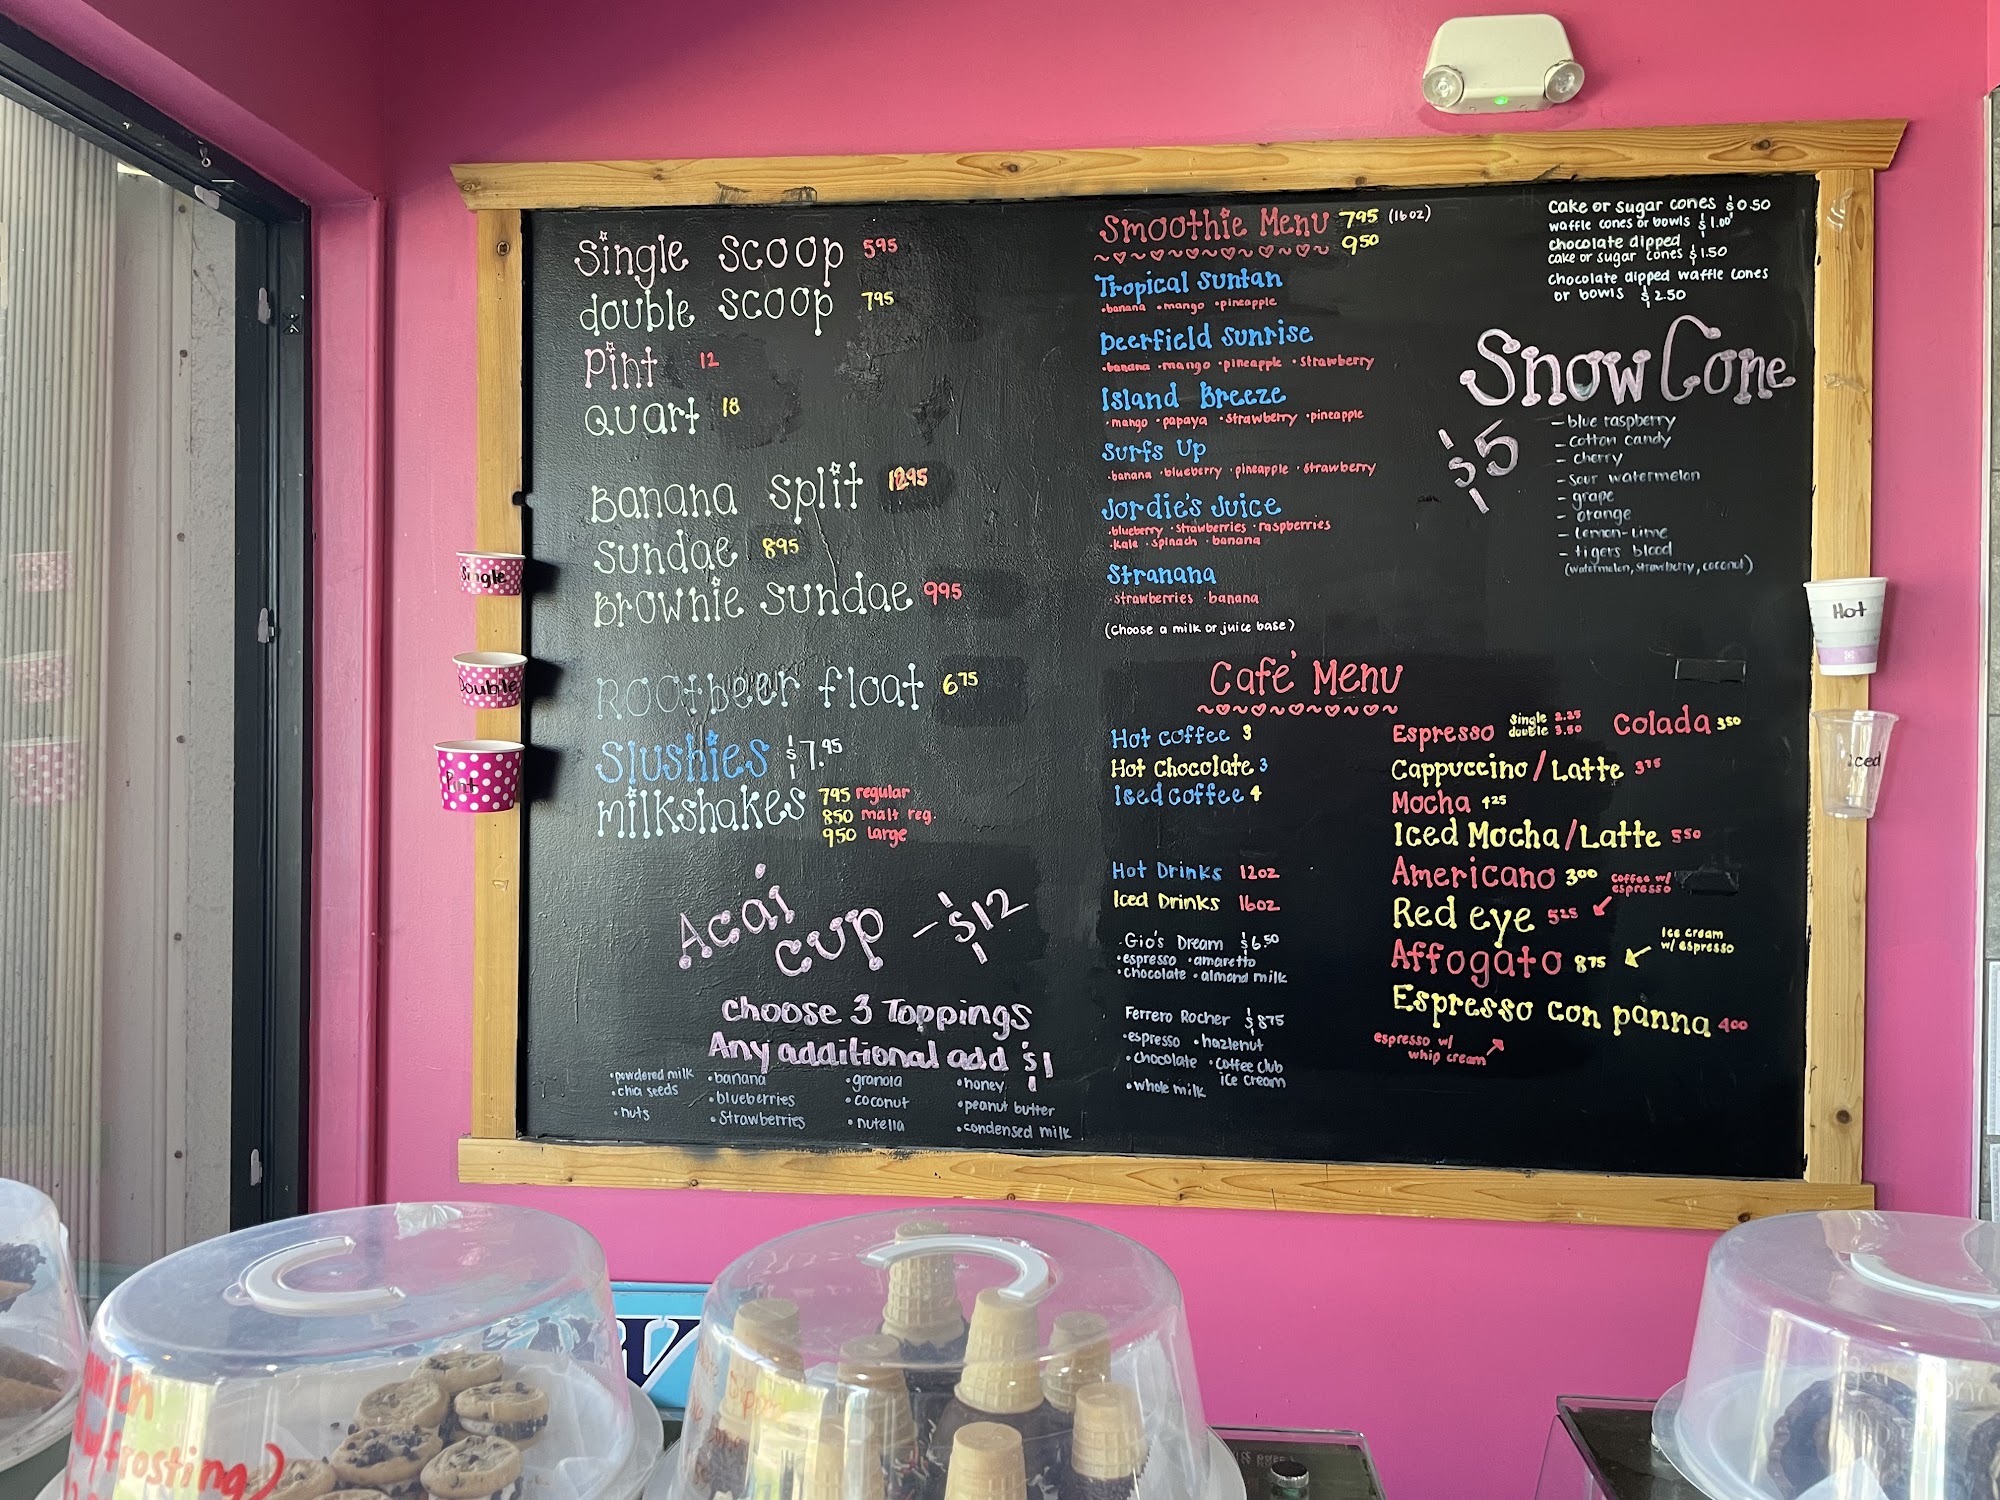 Single scoop 595
double scoop 795
Pint 12
Quart 18
Banana Split 1295
Sundae 895
Brownie Sundae 995
Rootbeer float 6 75
Slushies $7.95
Milkshakes 795 regular
850 malt reg.
950 large
Acai
cup - $12
Choose 3 Toppings
Any additional add $1
•powdered milk •banana •granola •honey
•chia seeds •blueberries •coconut •peanut butter
•nuts •Strawberries •nutella •condensed milk
Smoothie Menu 795 (16oz)
950
Tropical Suntan
•banana •mango •pineapple
Deerfield Sunrise
•banana •mango •pineapple •strawberry
Island Breeze
•mango •papaya •strawberry •pineapple
Surfs Up
•banana •blueberry •pineapple •strawberry
Jordie's Juice
•blueberry •strawberries •raspberries
•kale •spinach •banana
Stranana
•strawberries •banana
(Choose a milk or juice base)
Cake or sugar cones $0.50
waffle cones or bowls $1.00
chocolate dipped
cake or sugar cones $1.50
chocolate dipped waffle cones
or bowls $2.50
Snow Cone
$5
- blue raspberry
- cotton candy
- cherry
- sour watermelon
- grape
- orange
- lemon-lime
- tigers blood
(watermelon, strawberry, coconut)
Café Menu
Hot coffee 3
Hot Chocolate 3
Iced coffee 4
Hot Drinks 12oz
Iced Drinks 16oz
•Gio's Dream $6.50
•espresso •amaretto
•chocolate •almond milk
Ferrero Rocher $875
•espresso •hazlenut
•chocolate •coffee club
ice cream
•whole milk
Espresso single 2.25
double 3.50
Colada 350
Cappuccino/Latte 375
Mocha 425
Iced Mocha/Latte 550
Americano 300
coffee w/
espresso
Red eye 525
Affogato 875
Ice cream
w/ espresso
Espresso con panna 400
espresso w/
whip cream
Single
Double
Pint
Hot
Iced
w/frosting)